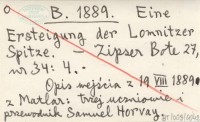 B. 1889. Eine
Ersteigung der Lomnitzer
Spitze. — Zipser Bote 27,
nr 34: 4.
Opis wejścia z 19 VIII 1889
z Matlar: trzej uczniowie i
przewodnik Samuel Horvay.